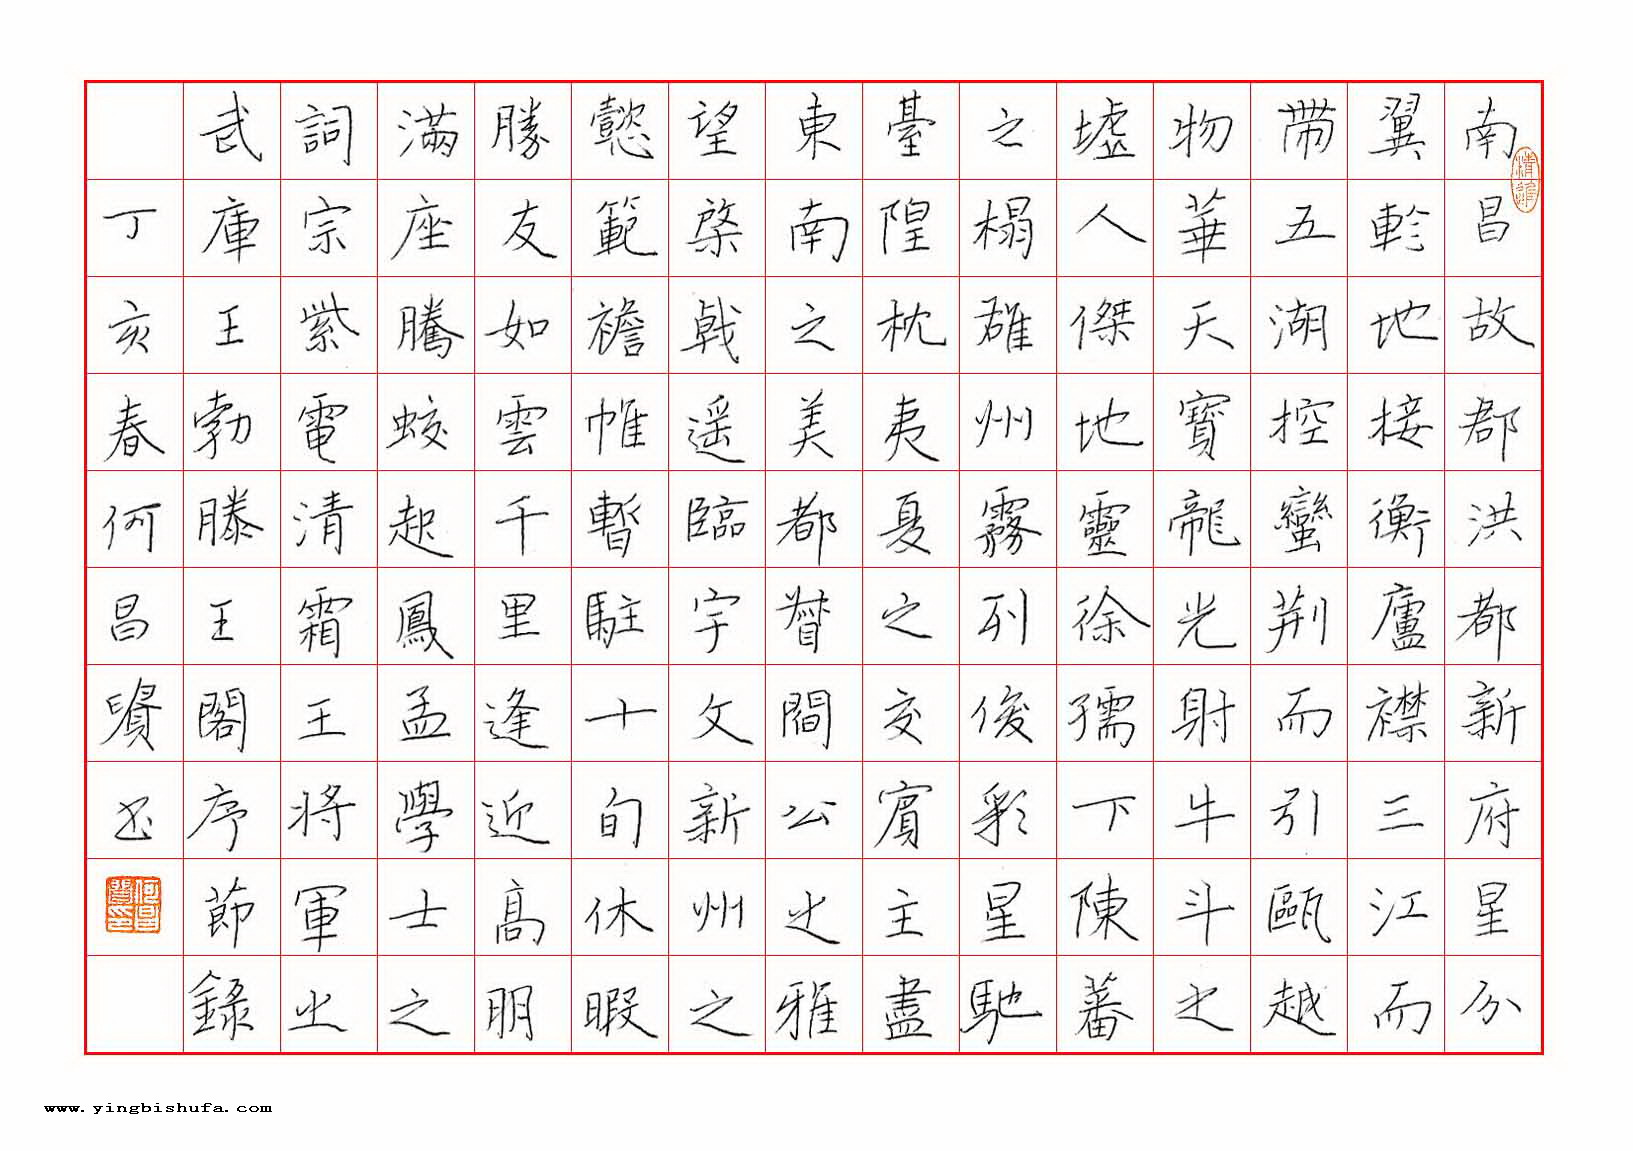 南昌故郡洪都新府星分
翼軫地接衡廬襟三江而
帶五湖控蠻荆而引甌越
物華天寶龍光射牛斗之
墟人傑地靈徐孺下陳蕃
之榻雄州霧列俊彩星馳
臺隍枕夷夏之交賓主盡
東南之美都督閻公之雅
望棨戟遥臨宇文新州之
懿範襜帷暫駐十旬休暇
勝友如雲千里逢迎高朋
滿座騰蛟起鳳孟學士之
詞宗紫電清霜王將軍之
武庫王勃滕王閣序節錄
丁亥春何昌賢书
www.yingbishufa.com